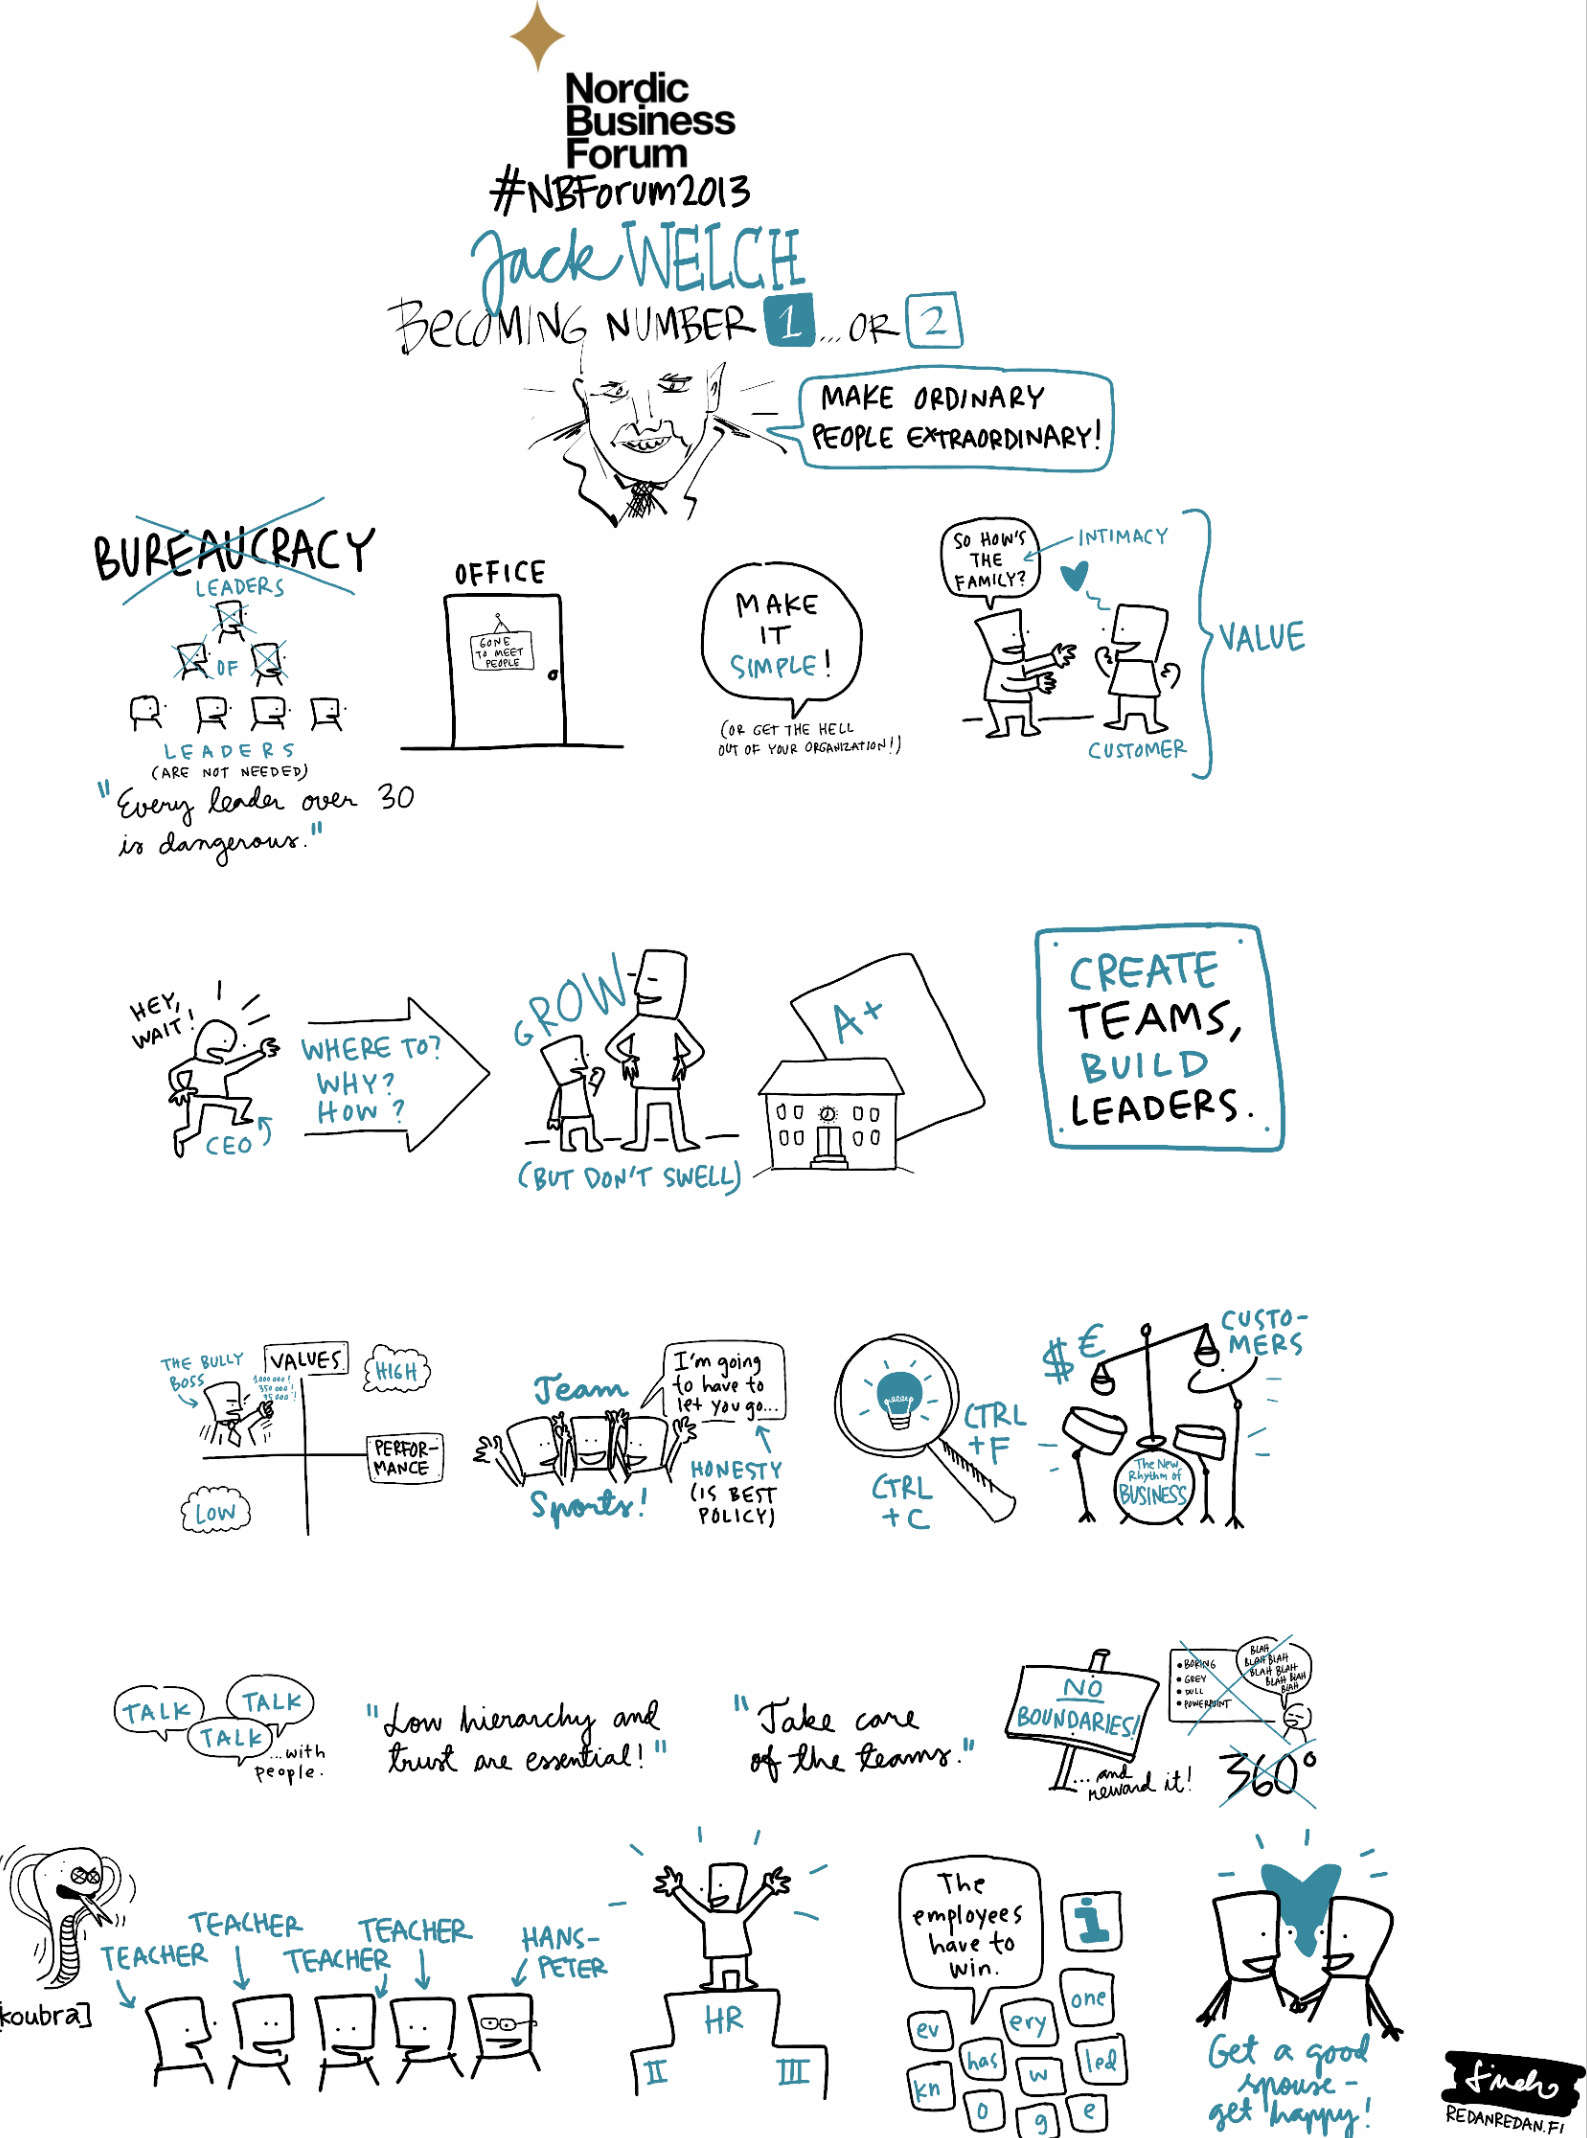 Nordic
Business
Forum
#NBForum2013
Jack WELCH
BECOMING NUMBER 1 ...OR 2
MAKE ORDINARY
PEOPLE EXTRAORDINARY!
BUREAUCRACY
LEADERS
OF
LEADERS
(ARE NOT NEEDED)
"Every leader over 30
is dangerous."
OFFICE
GONE
TO MEET
PEOPLE
MAKE
IT
SIMPLE!
(OR GET THE HELL
OUT OF YOUR ORGANIZATION!)
SO HOW'S
THE
FAMILY?
INTIMACY
CUSTOMER
VALUE
HEY,
WAIT!
CEO
WHERE TO?
WHY?
HOW?
GROW
(BUT DON'T SWELL)
A+
CREATE
TEAMS,
BUILD
LEADERS.
THE BULLY
BOSS
VALUES
HIGH
PERFOR-
MANCE
LOW
Team
Sports!
I'm going
to have to
let you go...
HONESTY
(IS BEST
POLICY)
CTRL
+F
CTRL
+C
$ €
CUSTO-
MERS
The New
Rhythm of
BUSINESS
TALK
TALK
TALK
...with
people.
"Low hierarchy and
trust are essential!"
"Take care
of the teams."
NO
BOUNDARIES!
...and
reward it!
• BORING
• GREY
• DULL
• POWERPOINT
BLAH
BLAH BLAH
BLAH BLAH
BLAH BLAH
BLAH
360°
[koubra]
TEACHER
TEACHER
TEACHER
TEACHER
HANS-
PETER
HR
II
III
The
employees
have to
win.
i
one
ev
ery
has
led
kn
w
o
g
e
Get a good
spouse -
get happy!
REDANREDAN.FI